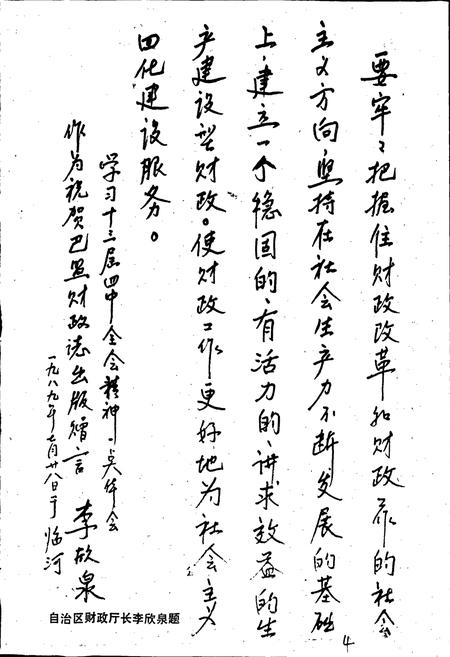 要牢々把握住财政改革和财政工作的社会
主义方向，坚持在社会生产力不断发展的基础
上，建立一个稳固的、有活力的、讲求效益的生
产建设型财政。使财政工作更好地为社会主义
四化建设服务。
学习十三届四中全会精神，
作为祝贺巴盟财政志出版赠言
李欣泉
一九八九年七月廿八日于临河
自治区财政厅长李欣泉题
4